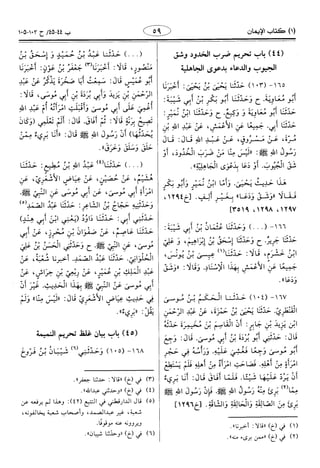 (١) كتاب الإيمان
٥٩
ب ٤٤-٤٥/ ح ١٠٢-١٠٥
(٤٤) باب تحريم ضرب الخدود وشق
الجيوب والدعاء بدعوى الجاهلية
١٦٥- (١٠٣) حَدَّثَنَا يَحْيَى بْنُ يَحْيَى: أَخْبَرَنَا
أَبُو مُعَاوِيَةَ. ح وَحَدَّثَنَا أَبُو بَكْرِ بْنُ أَبِي شَيْبَةَ:
حَدَّثَنَا أَبُو مُعَاوِيَةَ وَ وَكِيعٌ. ح وَحَدَّثَنَا ابْنُ نُمَيْرٍ:
حَدَّثَنَا أَبِي. جَمِيعًا عَنِ الْأَعْمَشِ، عَنْ عَبْدِ اللهِ بْنِ
مُرَّةَ، عَنْ مَسْرُوقٍ، عَنْ عَبْدِ اللهِ قَالَ: قَالَ
رَسُولُ اللهِ ﷺ: «لَيْسَ مِنَّا مَنْ ضَرَبَ الْخُدُودَ، أَوْ
شَقَّ الْجُيُوبَ، أَوْ دَعَا بِدَعْوَى الْجَاهِلِيَّةِ».
هٰذَا حَدِيثُ يَحْيَى. وَأَمَّا ابْنُ نُمَيْرٍ وَأَبُو بَكْرٍ
فَقَالَا «وَشَقَّ وَدَعَا» بِغَيْرِ أَلِفٍ. [خ ١٢٩٤،
١٢٩٧، ١٢٩٨، ٣٥١٩]
١٦٦- (...) وَحَدَّثَنَا عُثْمَانُ بْنُ أَبِي شَيْبَةَ:
حَدَّثَنَا جَرِيرٌ. ح وَحَدَّثَنَا إِسْحَقُ بْنُ إِبْرَاهِيمَ، وَ عَلِيُّ
ابْنُ خَشْرَمٍ، قَالَا: حَدَّثَنَا(١) عِيسَى بْنُ يُونُسَ،
جَمِيعًا عَنِ الْأَعْمَشِ بِهٰذَا الْإِسْنَادِ. وَقَالَا: «وَشَقَّ
وَدَعَا».
١٦٧- (١٠٤) حَدَّثَنَا الْحَكَمُ بْنُ مُوسَى
الْقَنْطَرِيُّ: حَدَّثَنَا يَحْيَى بْنُ حَمْزَةَ، عَنْ عَبْدِ الرَّحْمٰنِ
ابْنِ يَزِيدَ بْنِ جَابِرٍ: أَنَّ الْقَاسِمَ بْنَ مُخَيْمِرَةَ حَدَّثَهُ
قَالَ: حَدَّثَنِي أَبُو بُرْدَةَ بْنُ أَبِي مُوسَى. قَالَ: وَجِعَ
أَبُو مُوسَى وَجَعًا فَغُشِيَ عَلَيْهِ. وَرَأْسُهُ فِي حَجْرِ
امْرَأَةٍ مِنْ أَهْلِهِ. فَصَاحَتِ امْرَأَةٌ مِنْ أَهْلِهِ فَلَمْ يَسْتَطِعْ
أَنْ يَرُدَّ عَلَيْهَا شَيْئًا. فَلَمَّا أَفَاقَ قَالَ: أَنَا بَرِيءٌ
مِمَّا(٢) بَرِئَ مِنْهُ رَسُولُ اللهِ ﷺ. فَإِنَّ رَسُولَ اللهِ ﷺ
بَرِئَ مِنَ الصَّالِقَةِ وَالْحَالِقَةِ وَالشَّاقَّةِ. [خ ١٢٩٦]
(١) في (خ) «قالا: أخبرنا».
(٢) في (خ) «ممن بريء منه».
(...) حَدَّثَنَا عَبْدُ بْنُ حُمَيْدٍ وَ إِسْحَقُ بْنُ
مَنْصُورٍ، قَالَا: أَخْبَرَنَا(٣) جَعْفَرُ بْنُ عَوْنٍ: أَخْبَرَنَا
أَبُو عُمَيْسٍ قَالَ: سَمِعْتُ أَبَا صَخْرَةَ يَذْكُرُ عَنْ عَبْدِ
الرَّحْمٰنِ بْنِ يَزِيدَ وَ أَبِي بُرْدَةَ بْنِ أَبِي مُوسَى، قَالَا:
أُغْمِيَ عَلَى أَبِي مُوسَى وَأَقْبَلَتِ امْرَأَتُهُ أُمُّ عَبْدِ اللهِ
تَصِيحُ بِرَنَّةٍ قَالَا: ثُمَّ أَفَاقَ. قَالَ: أَلَمْ تَعْلَمِي (وَكَانَ
يُحَدِّثُهَا) أَنَّ رَسُولَ اللهِ ﷺ قَالَ: «أَنَا بَرِيءٌ مِمَّنْ
حَلَقَ وَسَلَقَ وَخَرَقَ».
(...) حَدَّثَنَا(٤) عَبْدُ اللهِ بْنُ مُطِيعٍ: حَدَّثَنَا
هُشَيْمٌ، عَنْ حُصَيْنٍ، عَنْ عِيَاضٍ الْأَشْعَرِيِّ، عَنِ
امْرَأَةِ أَبِي مُوسَى، عَنْ أَبِي مُوسَى عَنِ النَّبِيِّ ﷺ.
وَحَدَّثَنِيهِ حَجَّاجُ بْنُ الشَّاعِرِ: حَدَّثَنَا عَبْدُ الصَّمَدِ(٥)
قَالَ: حَدَّثَنِي أَبِي: حَدَّثَنَا دَاوُدُ (يَعْنِي ابْنَ أَبِي هِنْدٍ)
حَدَّثَنَا عَاصِمٌ، عَنْ صَفْوَانَ بْنِ مُحْرِزٍ، عَنْ أَبِي
مُوسَى، عَنِ النَّبِيِّ ﷺ. ح وَحَدَّثَنِي الْحَسَنُ بْنُ عَلِيٍّ
الْحُلْوَانِيُّ: حَدَّثَنَا عَبْدُ الصَّمَدِ: أَخْبَرَنَا شُعْبَةُ، عَنْ
عَبْدِ الْمَلِكِ بْنِ عُمَيْرٍ، عَنْ رِبْعِيِّ بْنِ حِرَاشٍ، عَنْ
أَبِي مُوسَى عَنِ النَّبِيِّ ﷺ بِهٰذَا الْحَدِيثِ. غَيْرَ أَنَّ
فِي حَدِيثِ عِيَاضٍ الْأَشْعَرِيِّ قَالَ: «لَيْسَ مِنَّا» وَلَمْ
يَقُلْ: «بَرِيءٌ».
(٤٥) باب بيان غلظ تحريم النميمة
١٦٨- (١٠٥) وَحَدَّثَنِي(٦) شَيْبَانُ بْنُ فَرُّوخَ
(٣) في (خ) «قالا: حدثنا جعفر».
(٤) في (خ) «وحدثني عبدالله».
(٥) قال الدارقطني في التتبع (٤٢): وهذا لم يرفعه عن
شعبة، غير عبدالصمد، وأصحاب شعبة يخالفونه،
ويروونه عنه موقوفًا.
(٦) في (خ) «حدثنا شيبان».